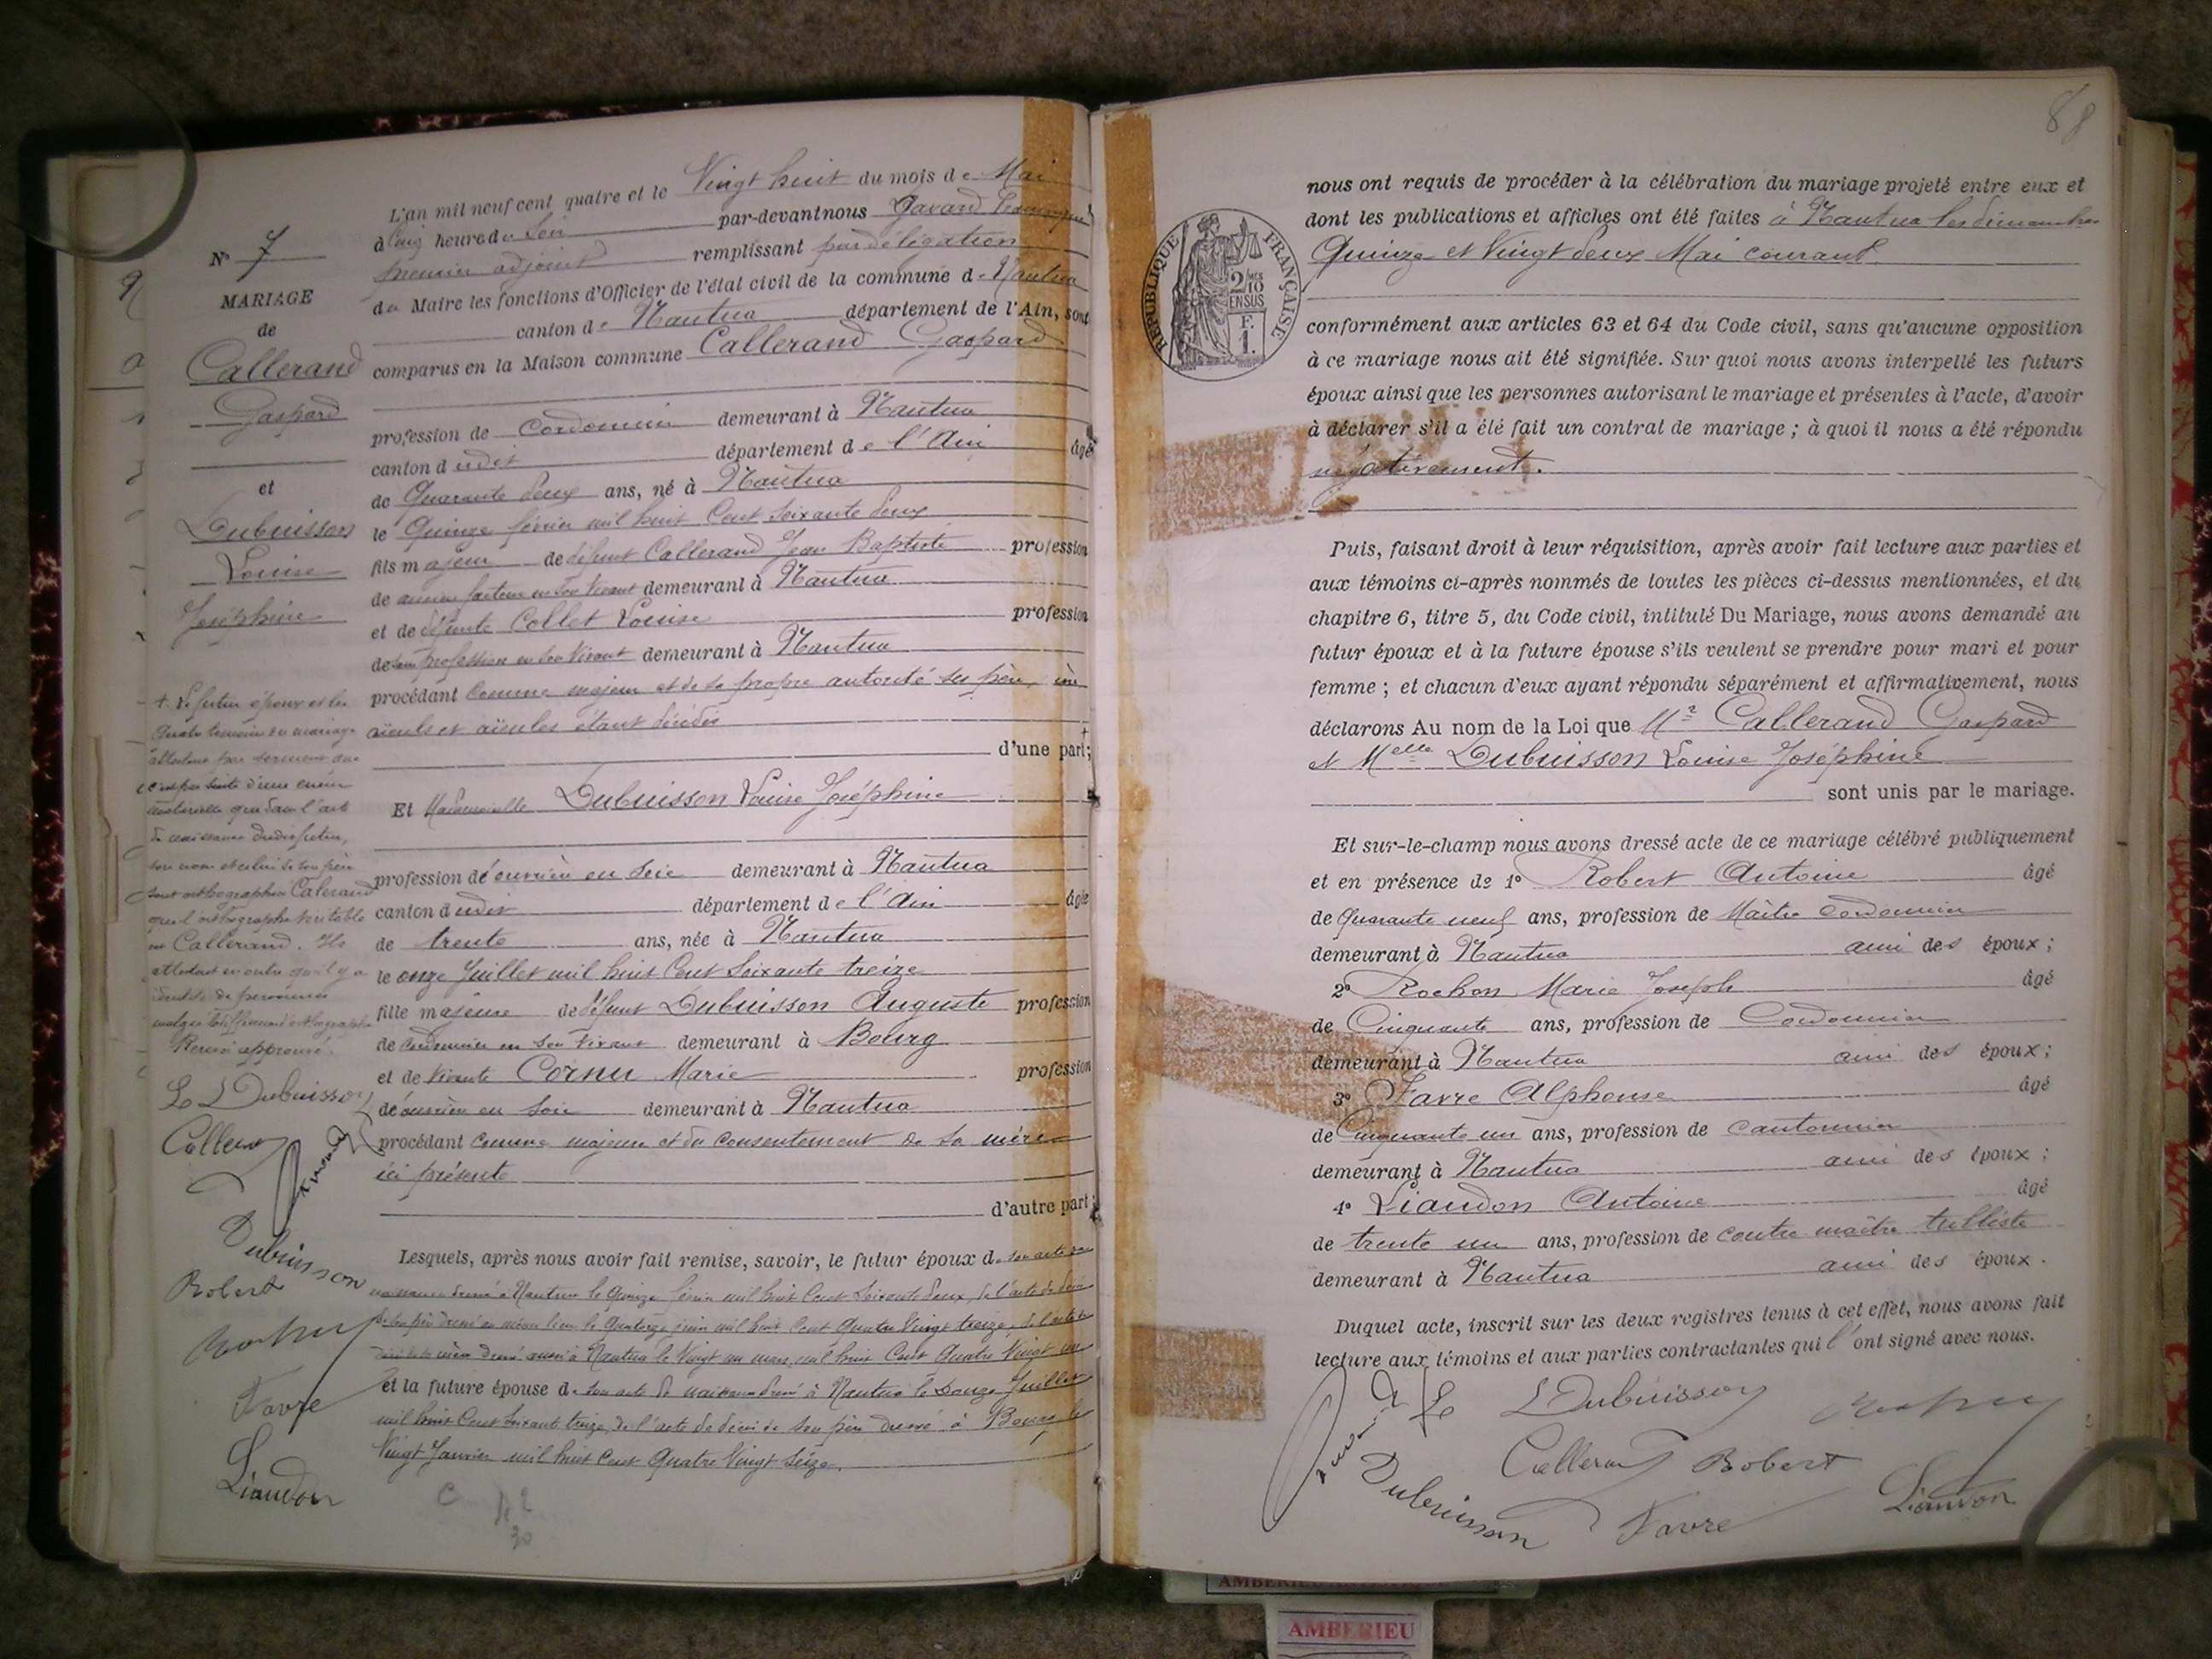 88
N° 7
MARIAGE
de
Callerand
Gaspard
et
Dubuisson
Louise
Joséphine
L'an mil neuf cent quatre et le Vingt huit du mois de Mai
à cinq heure du Soir par-devant nous Gavard
premier adjoint remplissant par délégation
du Maire les fonctions d'Officier de l'état civil de la commune de Nantua
canton de Nantua département de l'Ain, sont
comparus en la Maison commune Callerand Gaspard
profession de Cordonnier demeurant à Nantua
canton dudit département de l'Ain âgé
de Quarante deux ans, né à Nantua
le Quinze février mil huit Cent Soixante deux
fils majeur de défunt Callerand Jean Baptiste profession
de ancien facteur en son Vivant demeurant à Nantua
et de défunte Collet Louise profession
de sans profession en son Vivant demeurant à Nantua
procédant comme majeur et de sa propre autorité ses père, mère
aïeuls et aïeules étant décédés
d'une part;
+ Le futur époux et les
quatre témoins du mariage
attestent par serment que
c'est par suite d'une erreur
matérielle que dans l'acte
de naissance dudit futur,
son nom et celui de son père
sont orthographiés Calerand
que l'orthographe véritable
est Callerand. Ils
attestent en outre qu'il y a
identité de personnes
malgré la différence d'orthographe
Renvoi approuvé.
Et Mademoiselle Dubuisson Louise Joséphine
profession d'ouvrière en soie demeurant à Nantua
canton dudit département de l'Ain âgée
de trente ans, née à Nantua
le onze Juillet mil huit Cent Soixante treize
fille majeure de défunt Dubuisson Auguste profession
de Cordonnier en son Vivant demeurant à Bourg
et de Vivante Cornu Marie profession
de ouvrière en soie demeurant à Nantua
procédant comme majeure et du consentement de sa mère
ici présente
d'autre part;
Lesquels, après nous avoir fait remise, savoir, le futur époux de son acte de
naissance dressé à Nantua le Quinze février mil huit Cent Soixante deux, de l'acte de décès
de son père dressé au même lieu le Quatorze juin mil huit Cent Quatre Vingt treize, de l'acte de
décès de sa mère dressé aussi à Nantua le Vingt un mars mil huit Cent Quatre Vingt un
et la future épouse de son acte de naissance dressé à Nantua le douze Juillet
mil huit Cent Soixante treize, de l'acte de décès de son père dressé à Bourg le
Vingt Janvier mil huit Cent Quatre Vingt Seize.
L Dubuisson
Calleran
Dubuisson
Robert
Favre
Liaudon
RÉPUBLIQUE FRANÇAISE
2/10
EN SUS
F.
1.
nous ont requis de procéder à la célébration du mariage projeté entre eux et
dont les publications et affiches ont été faites à Nantua les dimanches
Quinze et Vingt deux Mai courant
conformément aux articles 63 et 64 du Code civil, sans qu'aucune opposition
à ce mariage nous ait été signifiée. Sur quoi nous avons interpellé les futurs
époux ainsi que les personnes autorisant le mariage et présentes à l'acte, d'avoir
à déclarer s'il a été fait un contrat de mariage ; à quoi il nous a été répondu
négativement.
Puis, faisant droit à leur réquisition, après avoir fait lecture aux parties et
aux témoins ci-après nommés de toutes les pièces ci-dessus mentionnées, et du
chapitre 6, titre 5, du Code civil, intitulé Du Mariage, nous avons demandé au
futur époux et à la future épouse s'ils veulent se prendre pour mari et pour
femme ; et chacun d'eux ayant répondu séparément et affirmativement, nous
déclarons Au nom de la Loi que Mr Callerand Gaspard
et Melle Dubuisson Louise Joséphine
sont unis par le mariage.
Et sur-le-champ nous avons dressé acte de ce mariage célébré publiquement
et en présence de 1° Robert Antoine âgé
de Quarante neuf ans, profession de Maître Cordonnier
demeurant à Nantua ami des époux ;
2° Rochon Marie Joseph âgé
de Cinquante ans, profession de Cordonnier
demeurant à Nantua ami des époux ;
3° Favre Alphonse âgé
de Cinquante un ans, profession de cantonnier
demeurant à Nantua ami des époux ;
4° Liaudon Antoine âgé
de trente un ans, profession de contre maître tulliste
demeurant à Nantua ami des époux.
Duquel acte, inscrit sur les deux registres tenus à cet effet, nous avons fait
lecture aux témoins et aux parties contractantes qui l'ont signé avec nous.
L Dubuisson
Calleran
Robert
Dubuisson
Favre
Liaudon
AMBERIEU